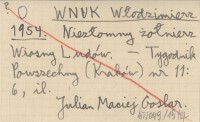 ? O WNUK Włodzimierz
1954. Niezłomny żołnierz
Wiosny Ludów. — Tygodnik
Powszechny (Kraków) nr 11:
6, il.
Julian Maciej Goslar.